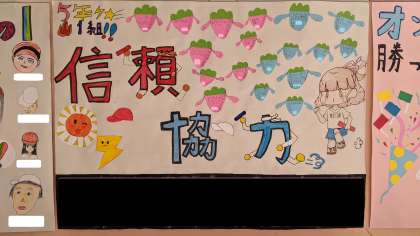 5年
1組!!
信頼
協力
オ
勝